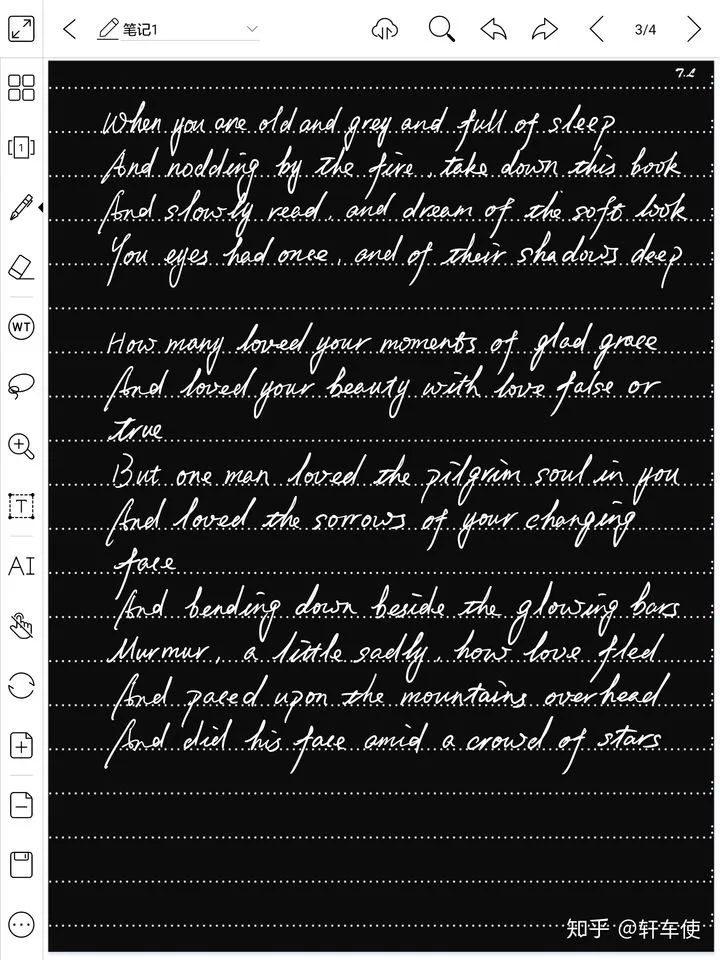 笔记1
3/4
7.2
When you are old and grey and full of sleep
And nodding by the fire, take down this book
And slowly read, and dream of the soft look
You eyes had once, and of their shadows deep
How many loved your moments of glad grace
And loved your beauty with love false or
true
But one man loved the pilgrim soul in you
And loved the sorrows of your changing
face
And bending down beside the glowing bars
Murmur, a little sadly, how love fled
And paced upon the mountains overhead
And did his face amid a crowd of stars
1
WT
T
AI
知乎 @轩车使